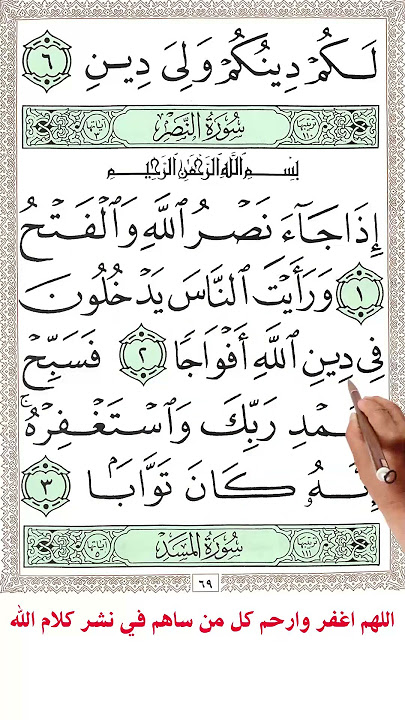 لَكُمْ دِينُكُمْ وَلِيَ دِينِ ٦
سُورَةُ النَّصْرِ
بِسْمِ ٱللَّهِ ٱلرَّحْمَٰنِ ٱلرَّحِيمِ
إِذَا جَآءَ نَصْرُ ٱللَّهِ وَٱلْفَتْحُ
١ وَرَأَيْتَ ٱلنَّاسَ يَدْخُلُونَ
فِى دِينِ ٱللَّهِ أَفْوَاجًا ٢ فَسَبِّحْ
رَبِّكَ وَٱسْتَغْفِرْهُ ۚ
كَانَ تَوَّابًۢا ٣
سُورَةُ المَسَدِ
٦٩
اللهم اغفر وارحم كل من ساهم في نشر كلام الله